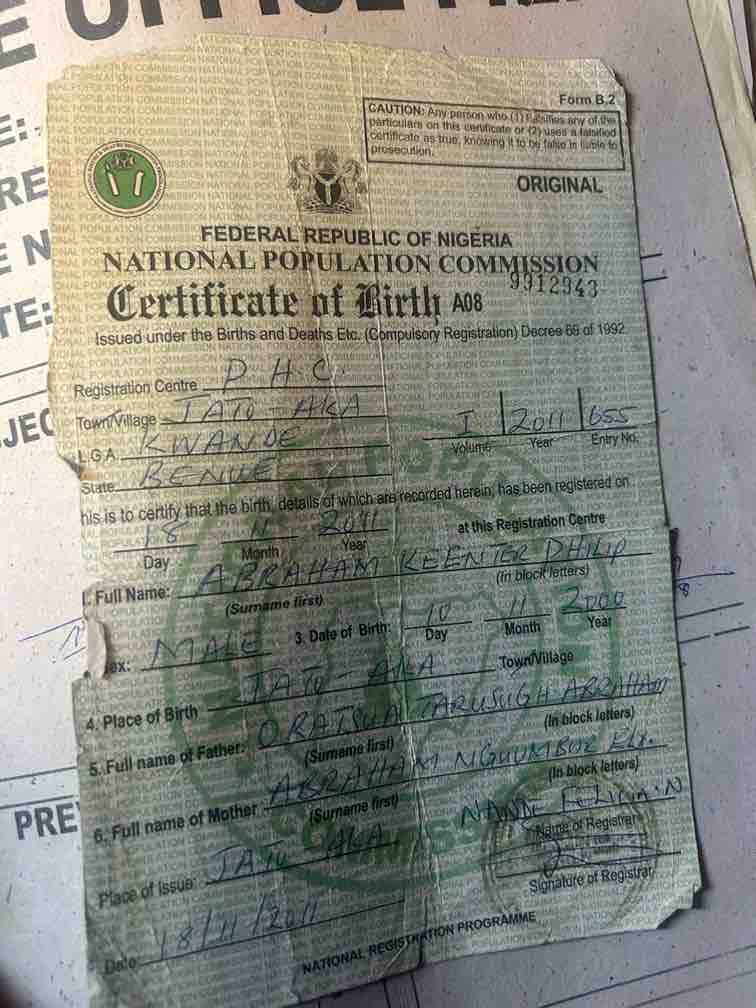 Form B.2
CAUTION: Any person who (1) falsifies any of the
particulars on this certificate or (2) uses a falsified
certificate as true, knowing it to be false is liable to
prosecution.
ORIGINAL
FEDERAL REPUBLIC OF NIGERIA
NATIONAL POPULATION COMMISSION
9912943
Certificate of Birth A08
Issued under the Births and Deaths Etc. (Compulsory Registration) Decree 69 of 1992
Registration Centre P H C.
Town/Village JATO-AKA
L.G.A. KWANDE
I 2011 655
Volume Year Entry No.
State BENUE
his is to certify that the birth, details of which are recorded herein, has been registered on
18 11 2011 at this Registration Centre
Day Month Year
1. Full Name: ABRAHAM KEENTER PHILIP
(Surname first) (In block letters)
ex: MALE 3. Date of Birth: 10 11 2000
Day Month Year
4. Place of Birth JATO-AKA Town/Village
5. Full name of Father: ORATSUA TARUSUGH ABRAHAM
(Surname first) (In block letters)
6. Full name of Mother ABRAHAM
(Surname first) (In block letters)
Name of Registrar
Place of Issue: JATO AKA
Signature of Registrar
Date 18/11/2011
NATIONAL REGISTRATION PROGRAMME
PRE